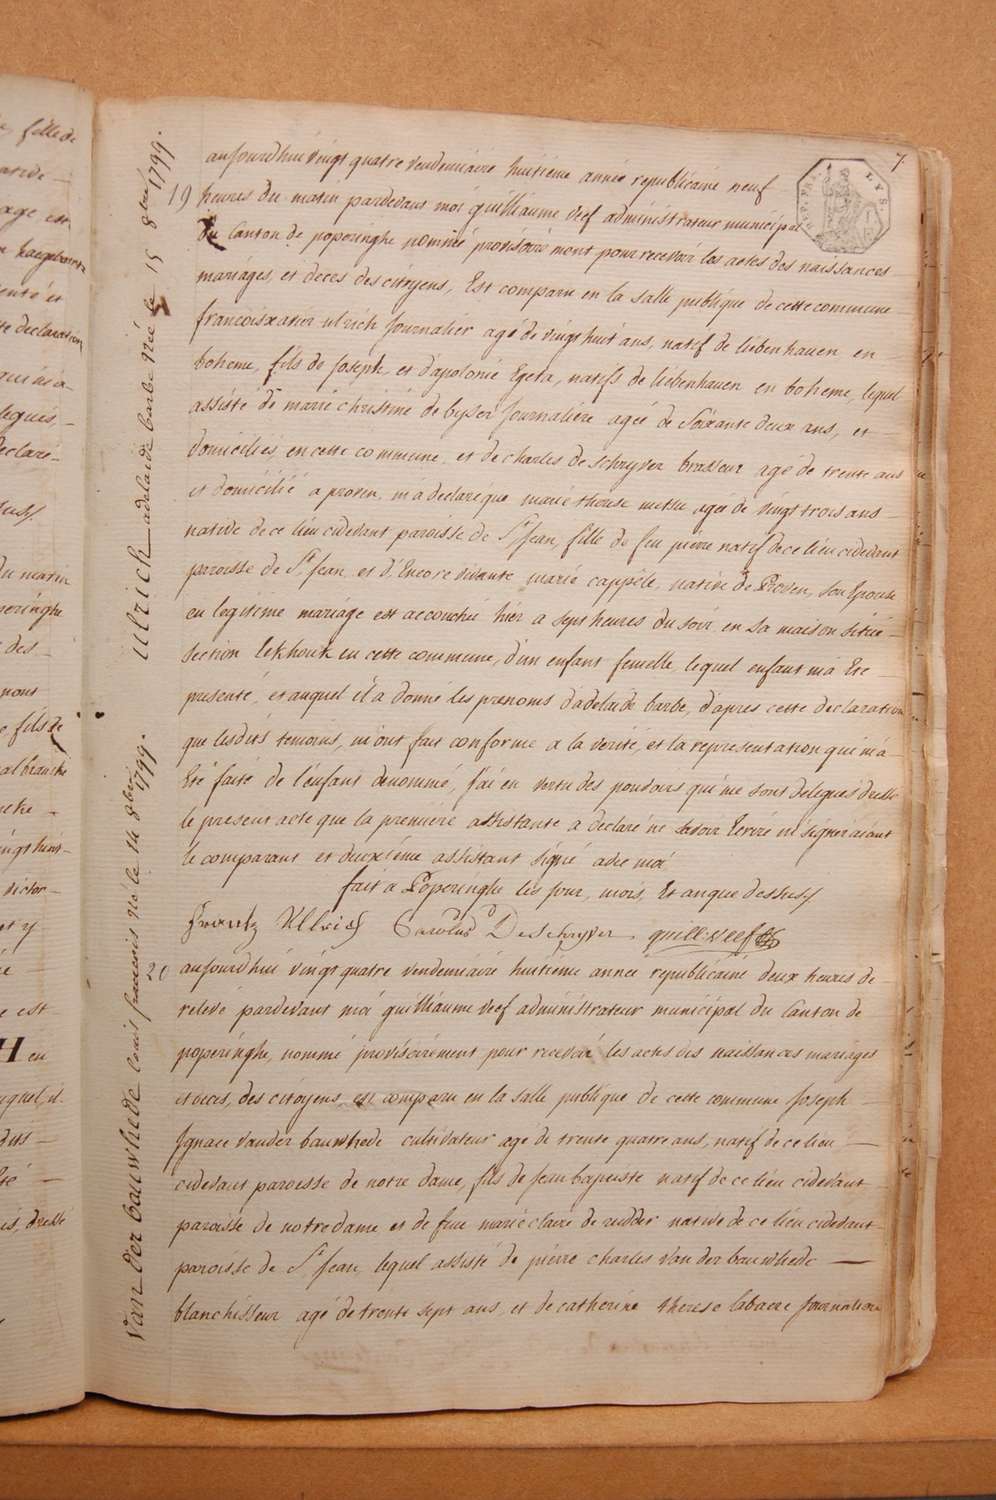 7
REP. FRA.
LYS.
aujourdhui vingt quatre vendemiaire huitieme année republicaine neuf
19 heures du matin pardevant moi guilliaume veef administrateur municipal
du Canton de poperinghe nommé provisoirement pour recevoir les actes des naissances
mariages, et deces des citoyens, Est comparu en la salle publique de cette commune
francoisxavier ulrich Journalier agé de vingt huit ans, natif de liebenhauen en
boheme, fils de Joseph et d'apolonie Egera, natifs de liebenhauen en boheme, lequel
assisté de marie christine de byser Journaliere agée de Soixante deux ans, et
domiciliés en cette commune et de charles de schryver brasseur agé de trente ans
et domicilié a proven, m'a declaré que marie therese agée de vingt trois ans
native de ce lieu cidevant paroisse de St Jean, fille de feu pierre natif de ce lieu cidevant
paroisse de St Jean et d'Encore vivante marie cappele, native de Proven, son Epouse
en legitime mariage est accouchée hier a sept heures du soir en sa maison située
section lekhouk en cette commune, d'un enfant femelle lequel enfant m'a Eté
presenté, et auquel il a donné les prenoms d'adelaide barbe, d'apres cette declaration
que lesdits temoins, m'ont fait conforme a la verité, et la representation qui m'a
Eté faite de l'enfant denommé, j'ai en vertu des pouvoirs qui me sont delegués dressé
le present acte que la premiere assistante a declaré ne savoir Ecrire ni signer aiant
le comparant et deuxieme assistant signé avec moi
fait a Poperinghe les jour, mois, Et an que dessus
Frantz Ullrich Carolus DeSchryver guill: veef
20 aujourdhui vingt quatre vendemiaire huitieme année republicaine deux heures de
relevé pardevant moi guilliaume veef administrateur municipal du Canton de
poperinghe, nommé provisoirement pour recevoir les actes des naissances mariages
et deces, des citoyens est comparu en la salle publique de cette commune Joseph
Ignace vander bauwhede cultivateur agé de trente quatre ans, natif de ce lieu
cidevant paroisse de notre dame, fils de Jean baptiste natif de ce lieu cidevant
paroisse de notre dame et de feue marie claire de ridder native de ce lieu cidevant
paroisse de St Jean, lequel assisté de pierre charles van der bauwhede
blanchisseur agé de trente sept ans, et de catherine therese labaere Journaliere
Ulrich adelaide barbe née le 15 8bre 1799.
Van der bauwhede louis francois né le 14 8bre 1799.